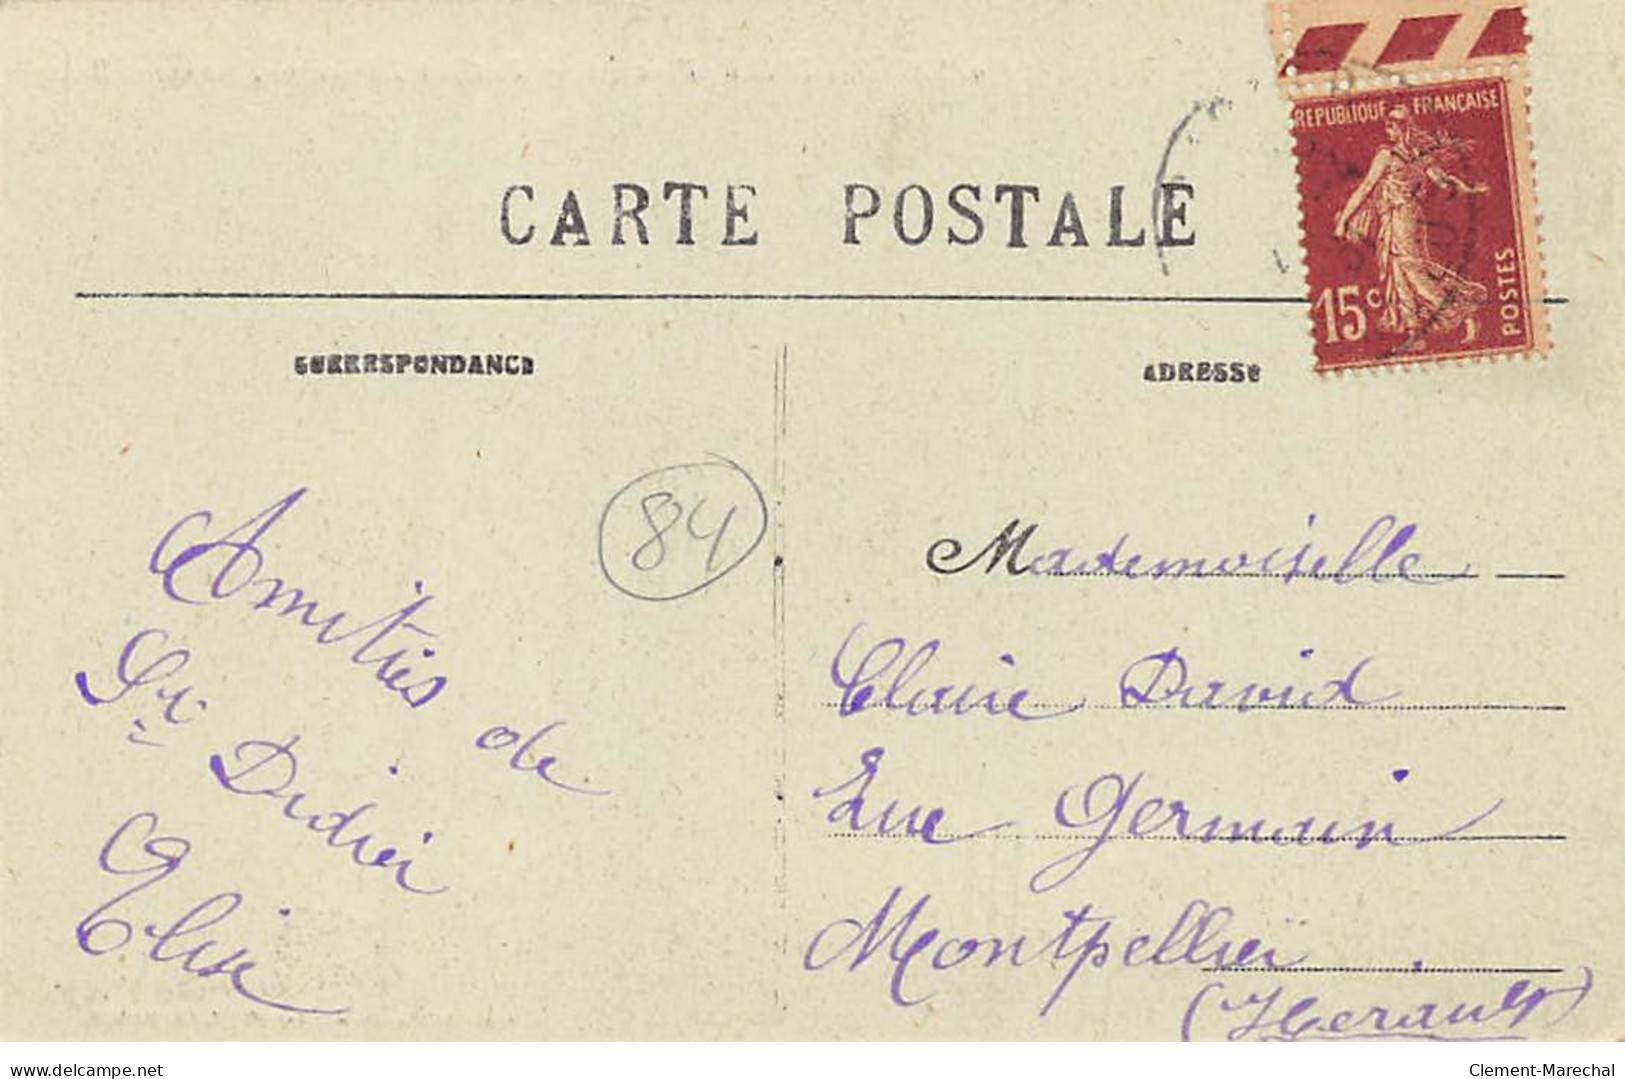 CARTE POSTALE
REPUBLIQUE FRANCAISE
15c
POSTES
CORRESPONDANCE
ADRESSE
84
Amitiés de
St Didier
Elise
Mademoiselle
Claire David
Rue Germain
Montpellier
(Herault)
www.delcampe.net
Clement-Marechal